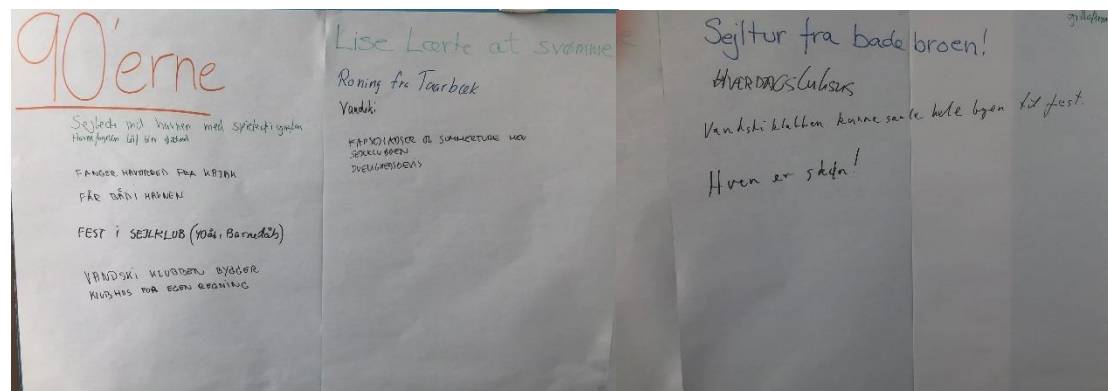 90'erne
Sejlede ind i havnen med
FANGER HAVØRRED FRA KAJAK
FÅR BÅD I HAVNEN
FEST i SEJLKLUB (40år, Barnedåb)
VANDSKI KLUBBEN BYGGER
KLUBHUS FOR EGEN REGNING
Lise Lærte at svømme
Roning fra Taarbæk
Vandski
KAPSEJLADSER OG SOMMERTURE MED
SEJLKLUBBEN
DUELIGHEDSBEVIS
Sejltur fra badebroen!
HVERDAGSluksus
Vandskiklubben kunne samle hele byen til fest.
Hven er skøn!